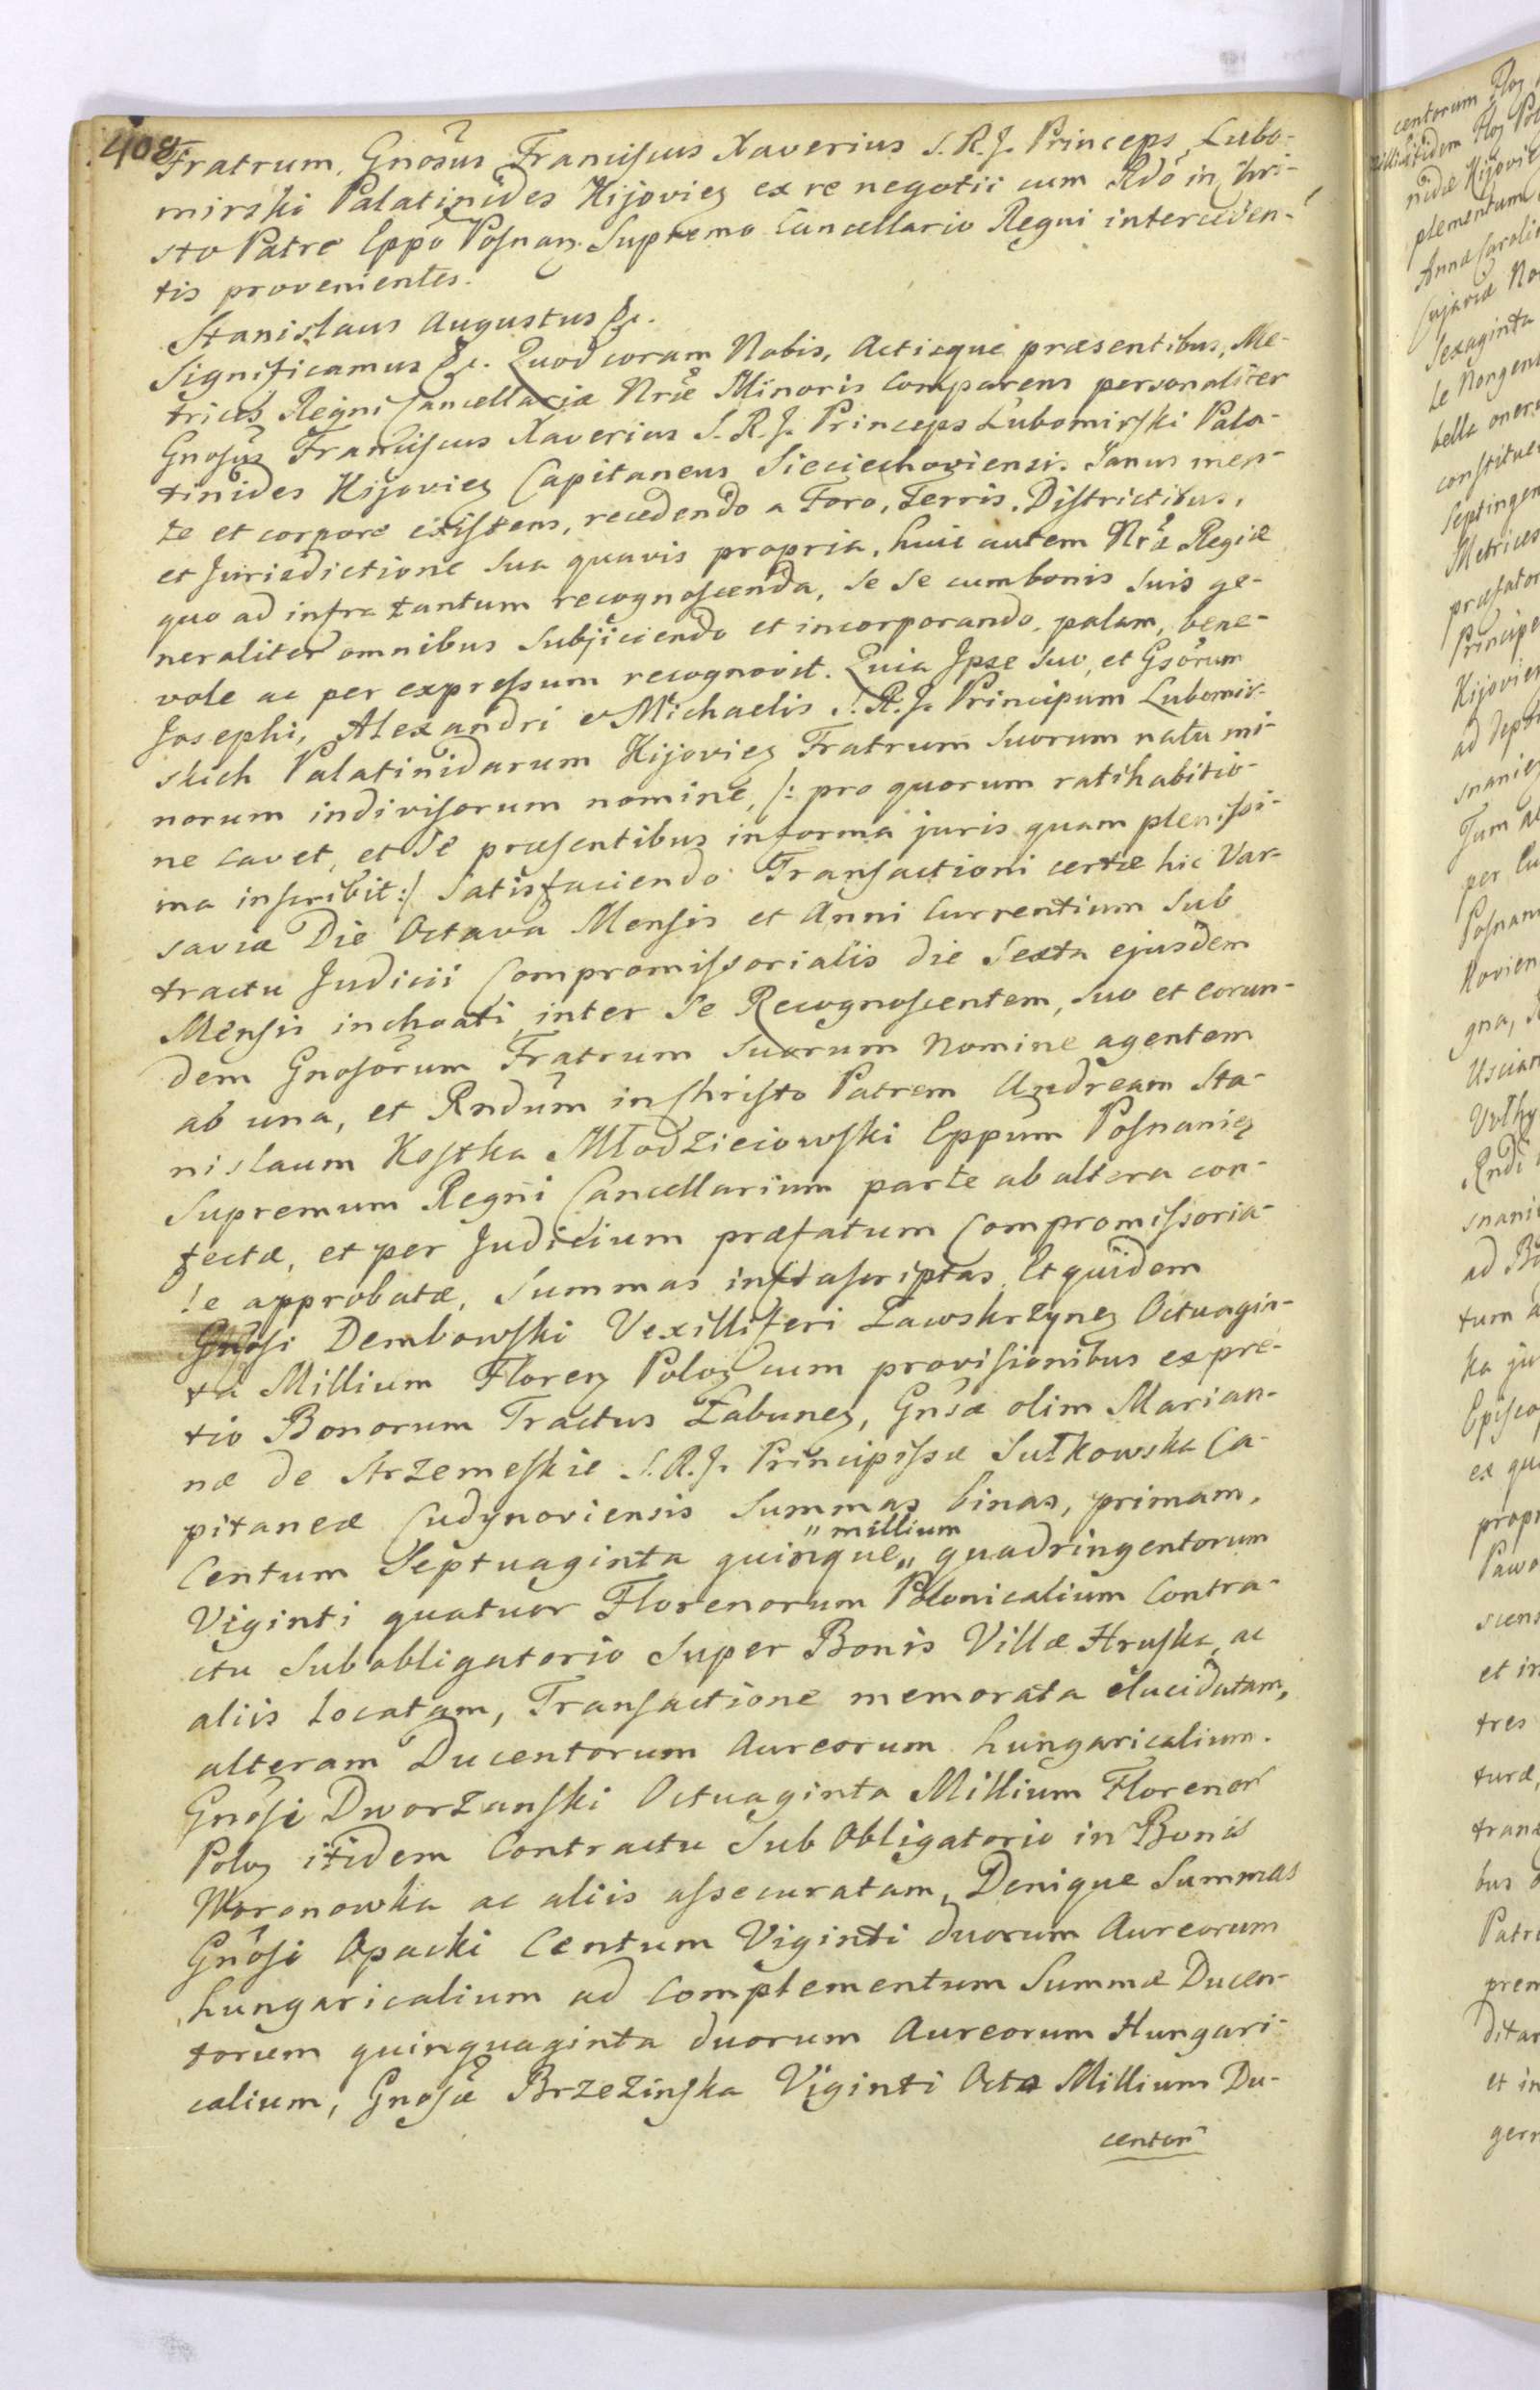 408.
Fratrum, Gnosus Franciscus Xaverius S. R. J. Princeps Lubo-
mirski Palatinides Kijovien ex re negotii cum Rdo in Chri-
sto Patre Eppo Posnan. Supremo Cancellario Regni interceden-
tis provenientes.
Stanislaus Augustus &c.
Significamus &c. Quod coram Nobis, Actisque præsentibus, Me-
trices Regni Cancellariæ Nræ Minoris Comparens personaliter
Gnosus Franciscus Xaverius S. R. J. Princeps Lubomirski Pala-
tinides Kijovien Capitaneus Sieciechoviensis Sanus men-
te et corpore existens, recedendo a Foro, Terris, Districtibus,
et Jurisdictione sua quavis propria, huic autem Nræ Regiæ
quo ad infra tantum recognoscenda, se se cum bonis suis ge-
neraliter omnibus subjiciendo et incorporando, palam, bene-
vole ac per expressum recognovit. Quia Ipse suo, et Gsorum
Josephi, Alexandri et Michaelis S. R. J. Principum Lubomir-
skich Palatinidarum Kijovien Fratrum suorum natu mi-
norum indivisorum nomine, /: pro quorum ratihabitio-
ne cavet, et se præsentibus in forma juris quam plenissi-
ma inscribit :/ Satisfaciendo Transactioni certæ hic Var-
saviæ Die Octava Mensis et Anni Currentium sub
tractu Judicii Compromissorialis die Sexta ejusdem
Mensis inchoati, inter se Recognoscentem, suo et eorun-
dem Gnosorum Fratrum suorum Nomine agentem
ab una, et Rndum in Christo Patrem Andream Sta-
nislaum Kostka Młodzieiowski Eppum Posnanien
Supremum Regni Cancellarium parte ab altera con-
fectæ, et per Judicium præfatum Compromissoria-
le approbatæ, Summas infrascriptas, Et quidem
Gnosi Dembowski Vexilliferi Zawskrzynen Octuagin-
ta Millium Floren Polon cum provisionibus ex pre-
tio Bonorum Tractus Łabunen, Gnsæ olim Marian-
næ de Strzemeskie S. R. J. Principissæ Sułkowska Ca-
pitaneæ Cudynoviensis Summas binas, primam,
Centum Septuaginta quinque „ millium „ quadringentorum
Viginti quatuor Florenorum Polonicalium Contra-
ctu Subobligatorio Super Bonis Villæ Hruska, ac
aliis Locatam, Transactione memorata elucidatam,
alteram Ducentorum Aureorum hungaricalium.
Gnosi Dworzanski Octuaginta Millium Florenor
Polon itidem Contractu Sub Obligatorio in Bonis
Woronowka ac aliis assecuratam, Denique Summas
Gnosi Opacki Centum Viginti duorum Aureorum
hungaricalium ad Complementum Summæ Ducen-
torum quinquaginta duorum Aureorum Hungari-
calium, Gnosæ Brzezinska Viginti Octo Millium Du-
centor